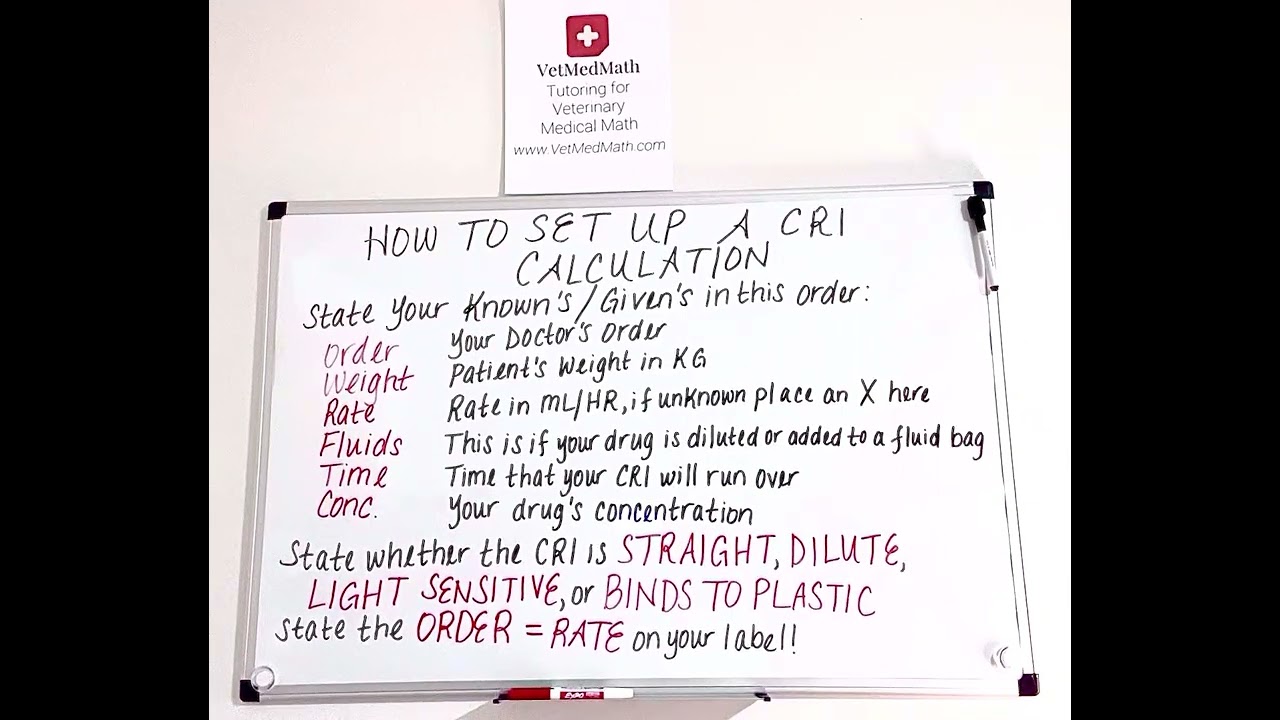 VetMedMath
Tutoring for
Veterinary
Medical Math
www.VetMedMath.com
HOW TO SET UP A CRI
CALCULATION
State Your Known's/Given's in this order:
Order Your Doctor's Order
Weight Patient's Weight in KG
Rate Rate in ML/HR, if unknown place an X here
Fluids This is if your drug is diluted or added to a fluid bag
Time Time that your CRI will run over
Conc. Your drug's concentration
State whether the CRI is STRAIGHT, DILUTE,
LIGHT SENSITIVE, or BINDS TO PLASTIC
State the ORDER = RATE on your label!
EXPO